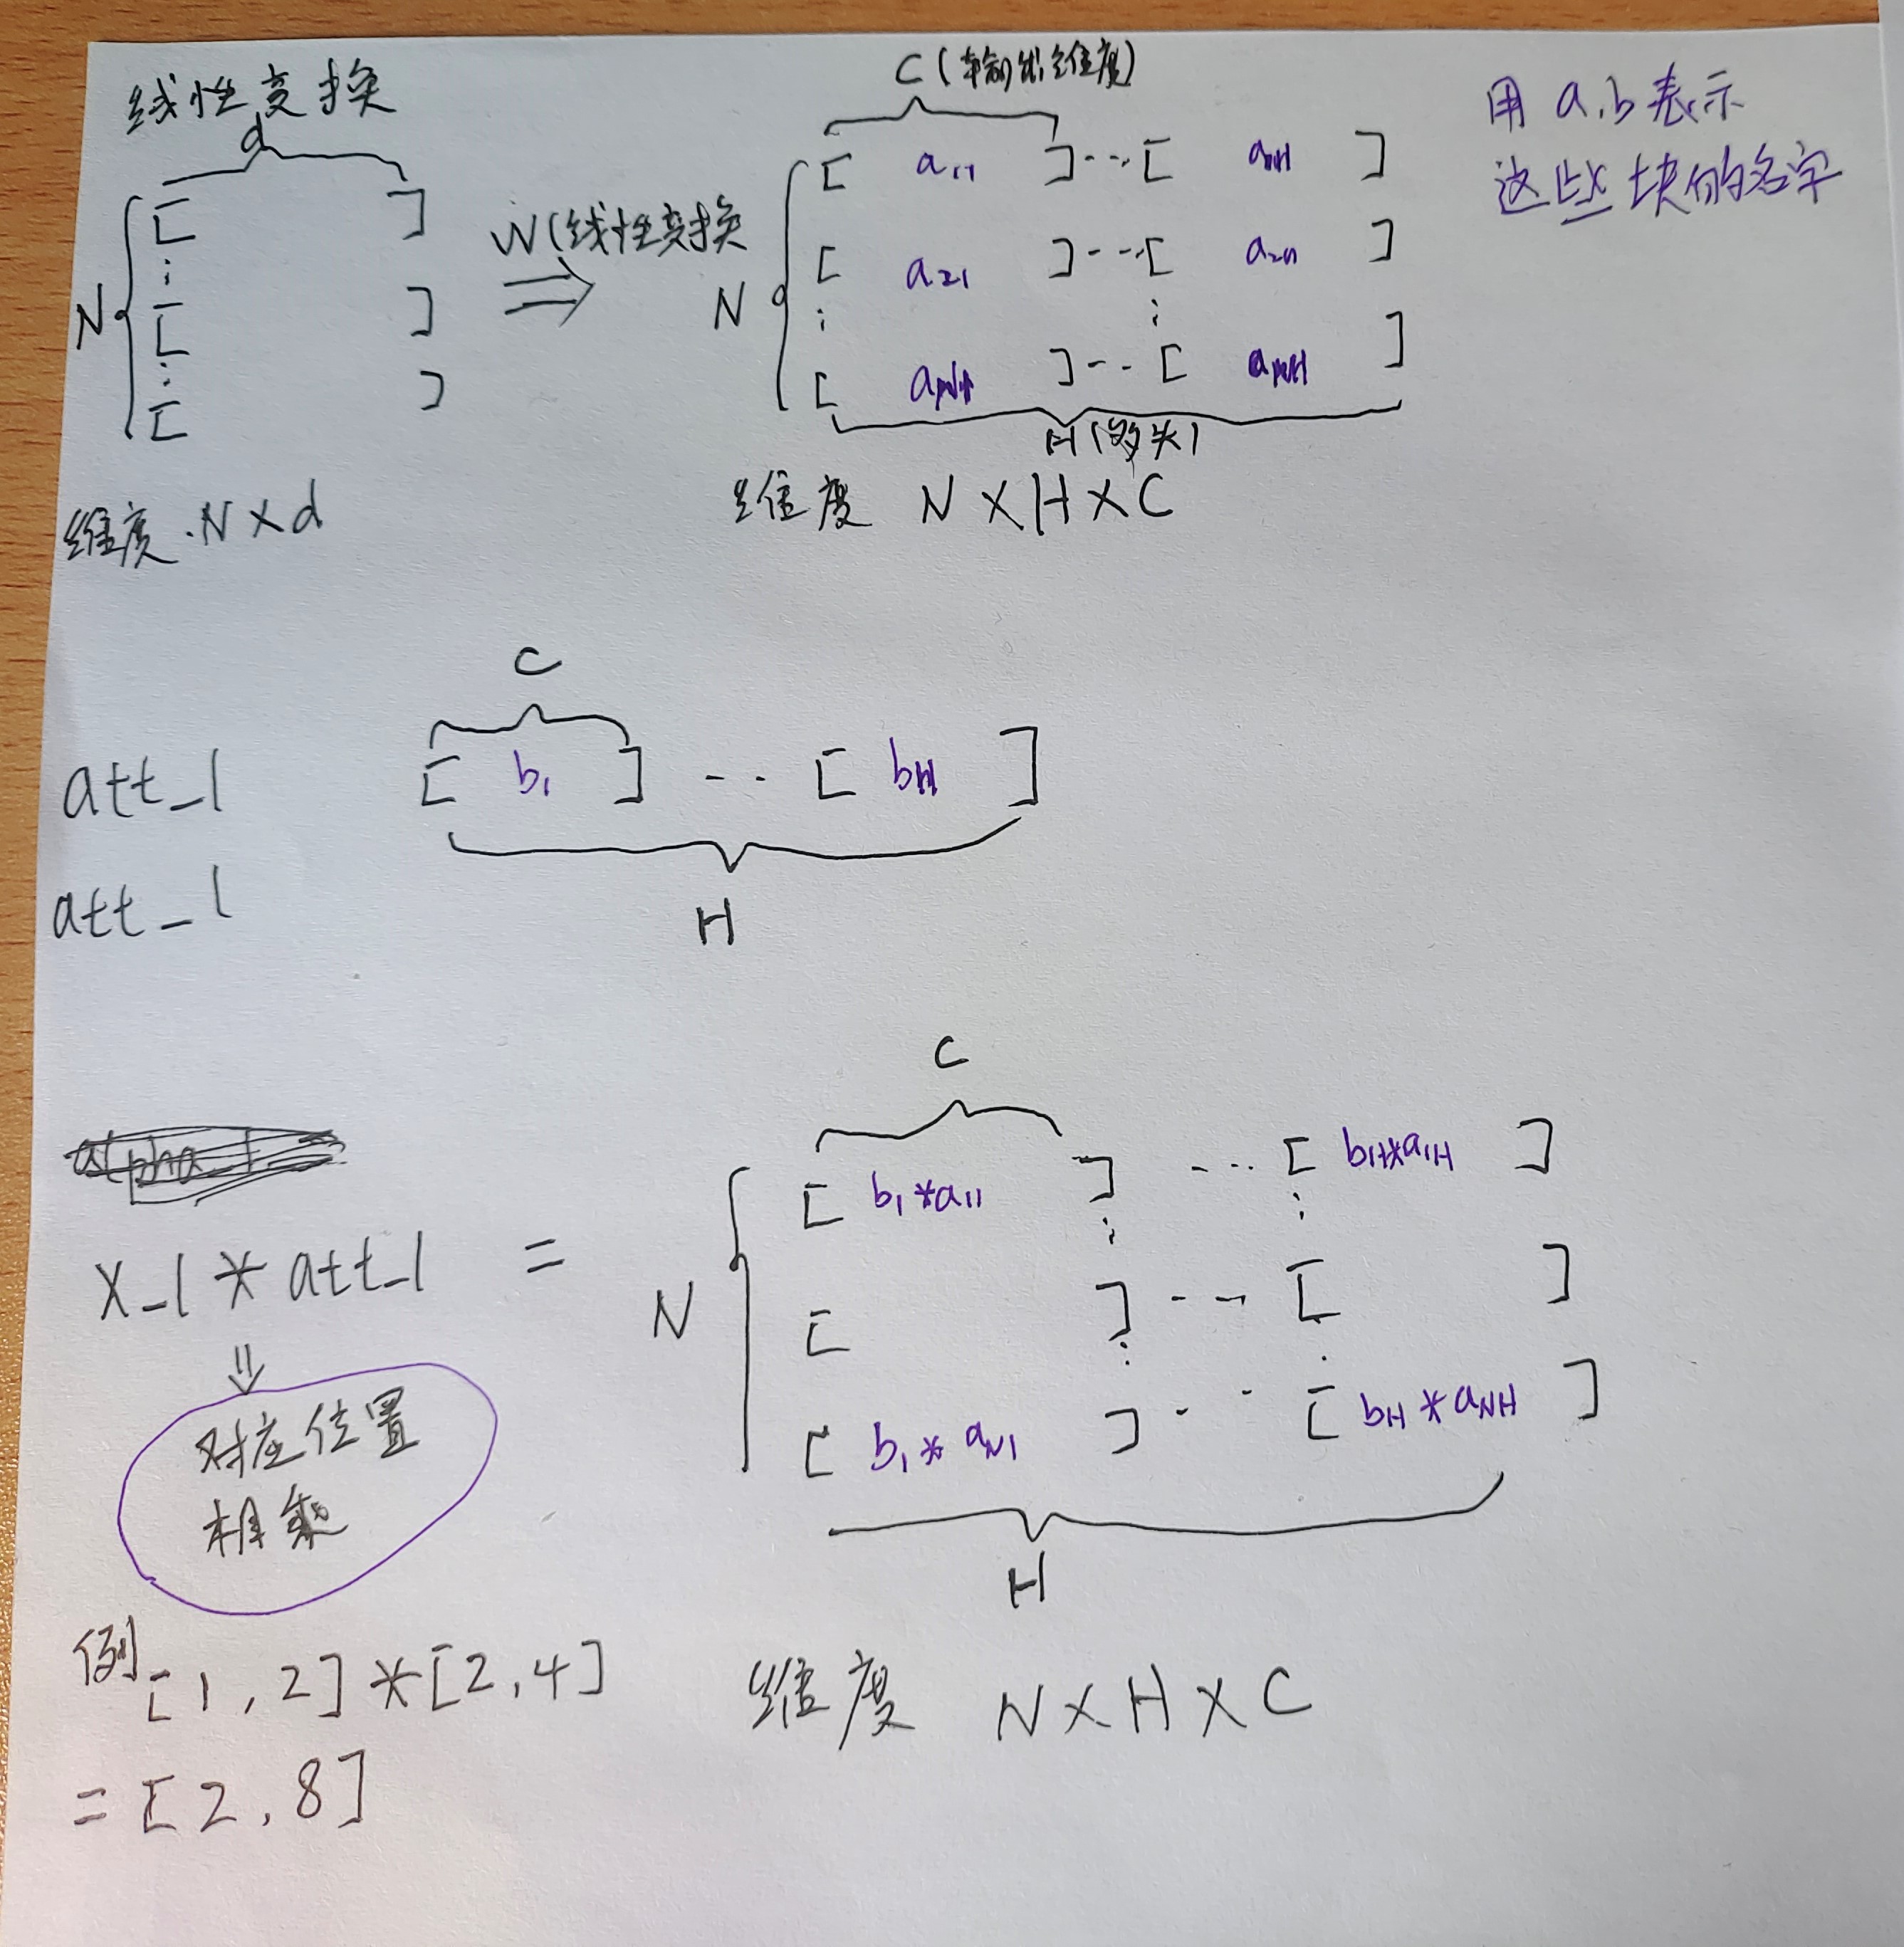 线性变换
d
N
[ ]
⋮
[ ]
⋮
[ ]
维度.N×d
W(线性变换
⇒
C(输出维度)
N
[ a11 ]···[ a1H ]
[ a21 ]···[ ]
⋮ ⋮
[ aN1 ]··[ aNH ]
H(多头)
维度 N×H×C
用a,b表示
这些块的名字
C
att_l [ b1 ] ··· [ bH ]
H
att_l
C
x_l * att_l =
N
[ b1*a11 ] ··· [ bH*a1H ]
⋮ ⋮
[ ] ··· [ ]
⋮ ⋮
[ b1*aN1 ] ·· [ bH*aNH ]
H
⇓
对应位置
相乘
例[1,2]*[2,4]
=[2,8]
维度 N×H×C